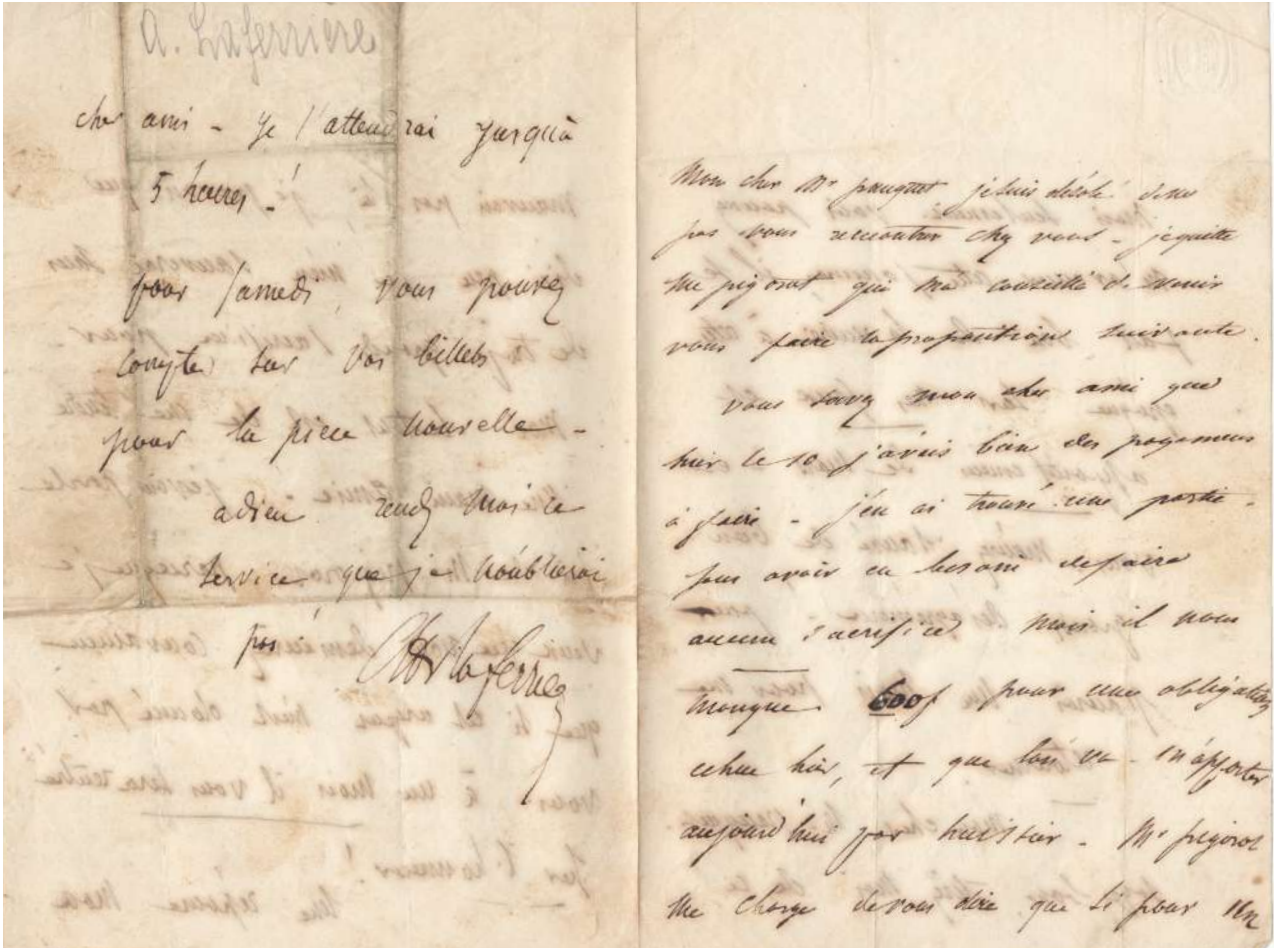 a. Laferrière
cher ami - je t'attendrai jusqu'à
5 heures !
pour samedi, vous pouvez
compter sur vos billets
pour la pièce nouvelle -
adieu rendez moi ce
service que je n'oublierai
pas
Laferrière
Mon cher Mr je suis désolé de ne
pas vous rencontrer chez vous - je quitte
Mr pigorot qui m'a conseillé de venir
vous faire la proposition suivante.
vous savez mon cher ami que
hier le 10 j'avais bien des payemens
à faire - j'en ai trouvé une partie -
sans avoir eu besoin de faire
aucun sacrifice mais il nous
manque 600f pour une obligation
echue hier, et que l'on va m'apporter
aujourd'hui par huissier - Mr pigorot
me charge de vous dire que si pour un